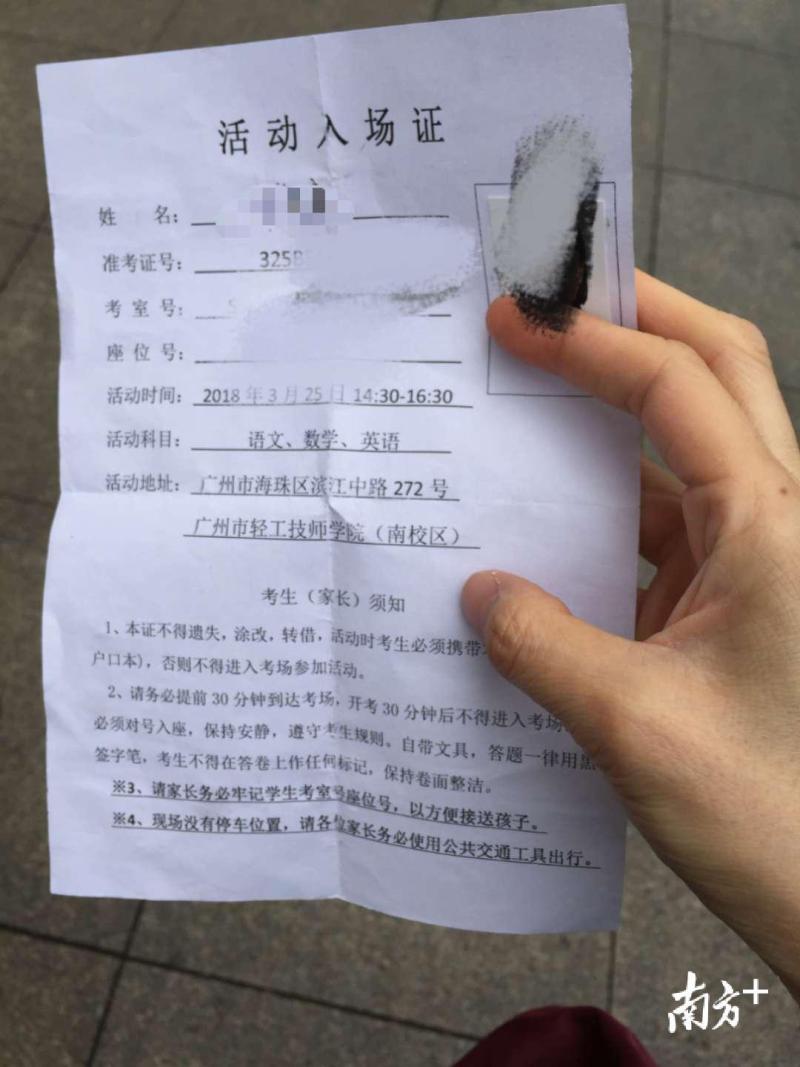 活动入场证
姓 名：
准考证号： 325B
考室号： S
座位号：
活动时间： 2018年3月25日 14:30-16:30
活动科目： 语文、数学、英语
活动地址： 广州市海珠区滨江中路272号
广州市轻工技师学院（南校区）
考生（家长）须知
1、本证不得遗失，涂改，转借，活动时考生必须携带
户口本)，否则不得进入考场参加活动。
2、请务必提前30分钟到达考场，开考30分钟后不得进入考场
必须对号入座，保持安静，遵守考生规则。自带文具，答题一律用黑
签字笔，考生不得在答卷上作任何标记，保持卷面整洁。
※3、请家长务必牢记学生考室号座位号，以方便接送孩子。
※4、现场没有停车位置，请各位家长务必使用公共交通工具出行。
南方+